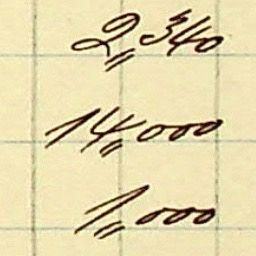 2,340
14,000
1,000